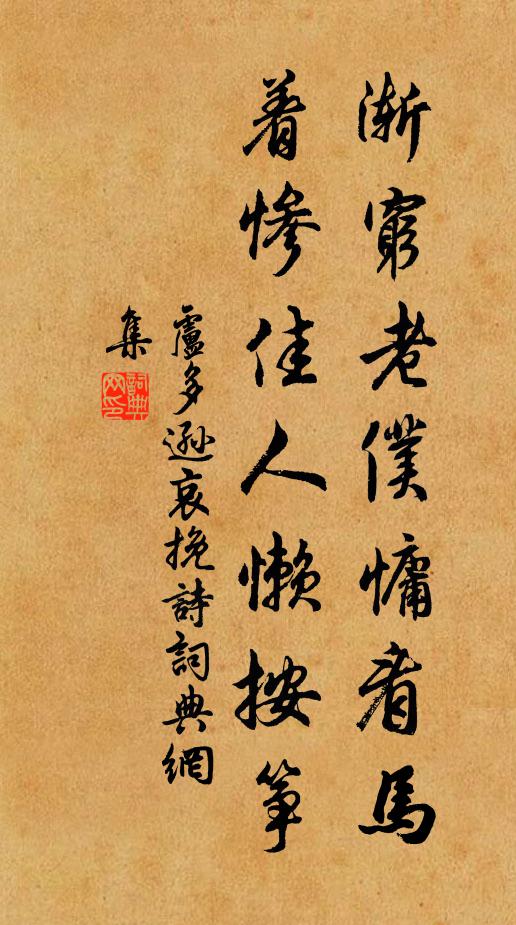 漸窮老僕慵看馬
着慘佳人懶按箏
盧多遜哀挽詩詞典網
集
詞典網印